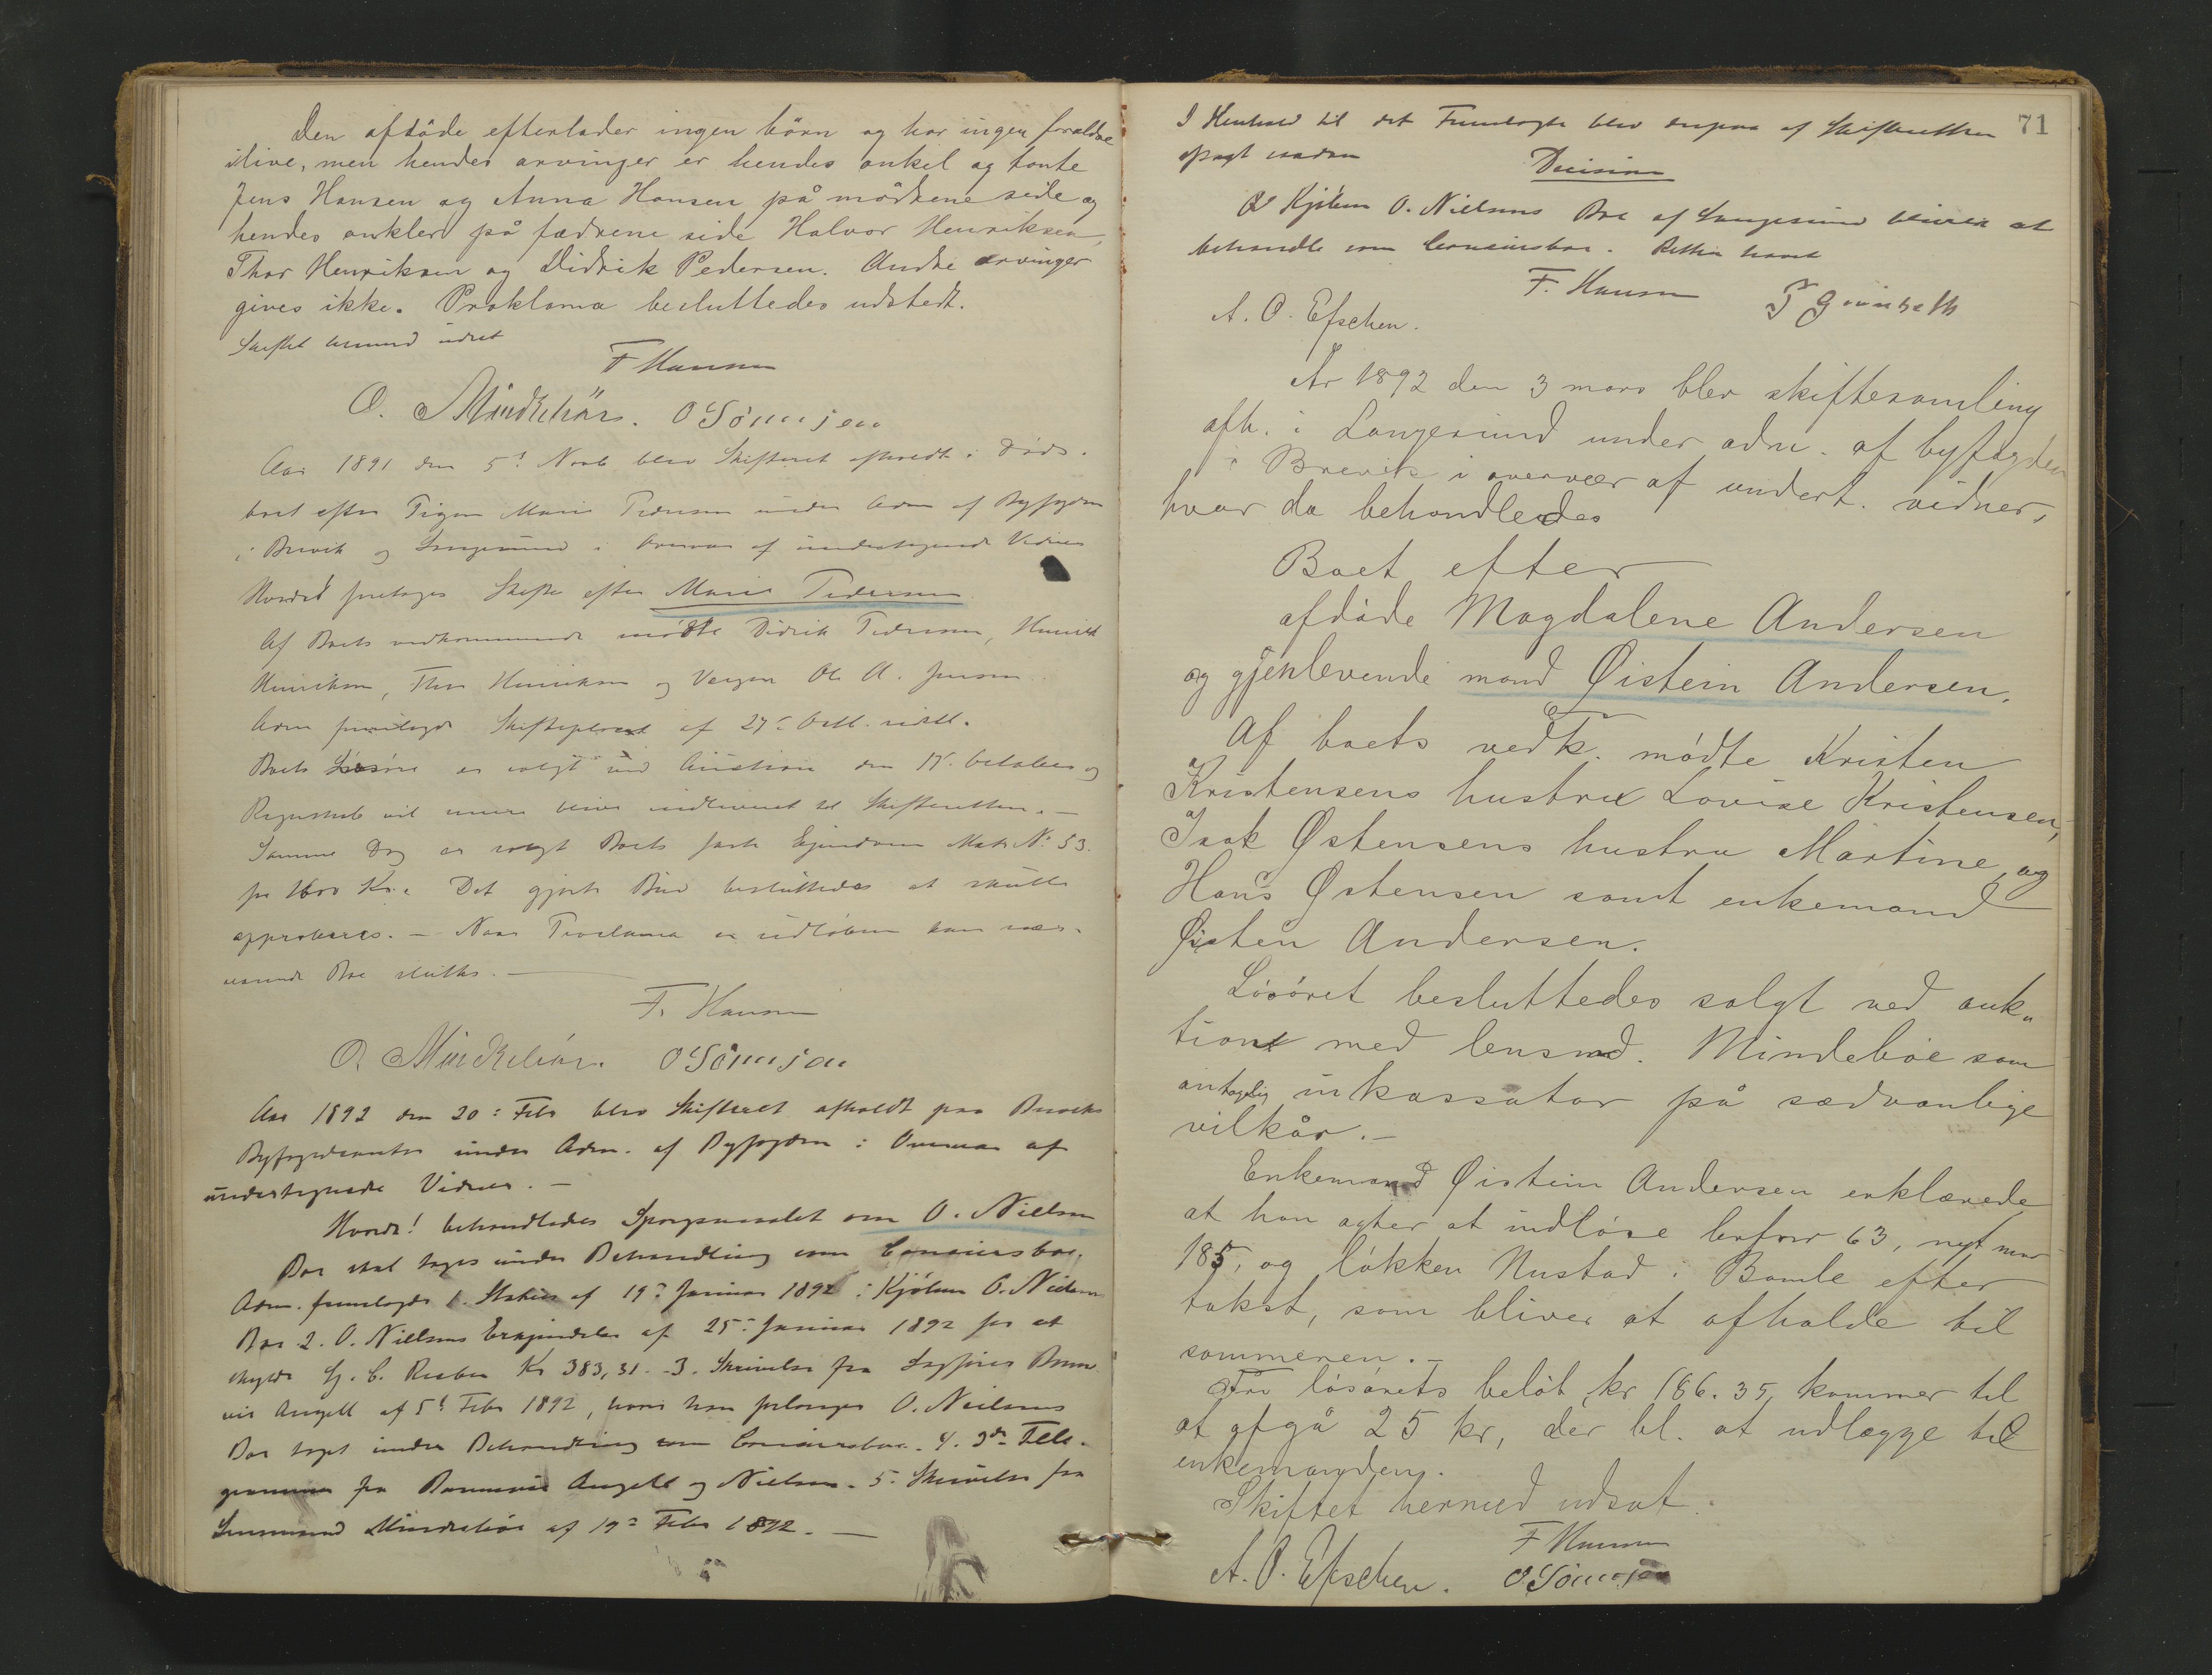 Den afdöde efterlader ingen börn og har ingen forældre
ilive, men hendes arvinger er hendes onkel og tante
Jens Hansen og Anna Hansen på mödrene side og
hendes onkler på fædrene side Halvor Henriksen,
Thor Henriksen og Didrik Pedersen. Andre arvinger
gives ikke. Proklama besluttedes udstedt.
Skiftet hermed udsat
F Hansen
O. Mindeböe. O Sönnsjen
Aar 1891 den 5t Novb blev Skifteret afholdt i Döds-
boet efter Pigen Marie Pedersen under Adm af Byfogden
i Brevik og Langesund i Overvær af undertegnede Vidner
Hvorda foretoges Skifte efter Marie Pedersen
Af Boets vedkommende mödte Didrik Pedersen, Henrik
Henriksen, Thor Henriksen og Vergen Ole A. Jensen
Adm fremlagde af 27de
Boets Lösöre er solgt ved Auktion den og
Regnskab vil blive indleveret til Skifteretten. –
Samme Dag er solgt Boets faste Ejendom Matr No 53.
for 1600 Kr. Det gjorte Bud besluttedes at skulle
approberes. – Naar Proclama er udlöben kan nær-
værende Bo sluttes. –
F. Hansen
O. Mindeböe. O Sönnsjen
Aar 1892 den 20de Febr blev Skifteret afholdt paa Breviks
Byfogedcontor under Adm. af Byfogden i Overvær af
undertegnede Vidner. –
Hvorda! behandledes Spörgsmaalet om O. Nielsen
Bo skal tages under Behandling som Concursbo.
Adm. fremlagde 1. af 19de Januar 1892 i Kjöbm O. Nielsens
Bo 2. O. Nielsens Erkjendelse af 25de Januar 1892 for at
skylde Kr 383,31 - 3. Skrivelse fra Sagförer
Angell af 5t Febr 1892, hvori han forlanger O. Nielsens
Bo taget under Behandling som Concursbo. 4. 3de Tele-
grammer fra Angell og Nielsen. 5. Skrivelse fra
Lensmand Mindeböe af 19de Febr 1892. –
71
I Henhold til det Fremlagte blev derpaa af Skifteretten
afsagt saadan
Decision
Kjöbm O. Nielsens Bo af Langesund bliver at
behandle som Concursbo. Retten hævet
F. Hansen
A. O. Efschen.
År 1892 den 3 mars blev skiftesamling
afh. i Langesund under adm. af byfogden
i Brevik i overvær af undert. vidner,
hvor da behandledes
Boet efter
afdöde Magdalene Andersen
og gjenlevende mand Øistein Andersen.
Af boets vedk. mödte Kristen
Kristensens hustru Lovise Kristensen,
Isak Østensens hustru Martine og
Hans Østensen samt enkemand
Øisten Andersen.
Lösöret besluttedes solgt ved auk„
tion med lensmd. Mindeböe som
antagelig inkassator på sædvanlige
vilkår. –
Enkemand Øistein Andersen erklærede
at han agter at indlöse 63, nyt
185, og lökken Nustad i Bamle efter
takst, som bliver at afholde til
sommeren. –
Fra lösörets belöb kr 186.35, kommer til
at afgå 25 kr, der bl. at udlægge til
enkemanden.
Skiftet hermed udsat.
F Hansen
A. O. Efschen. O. Sönnsjen